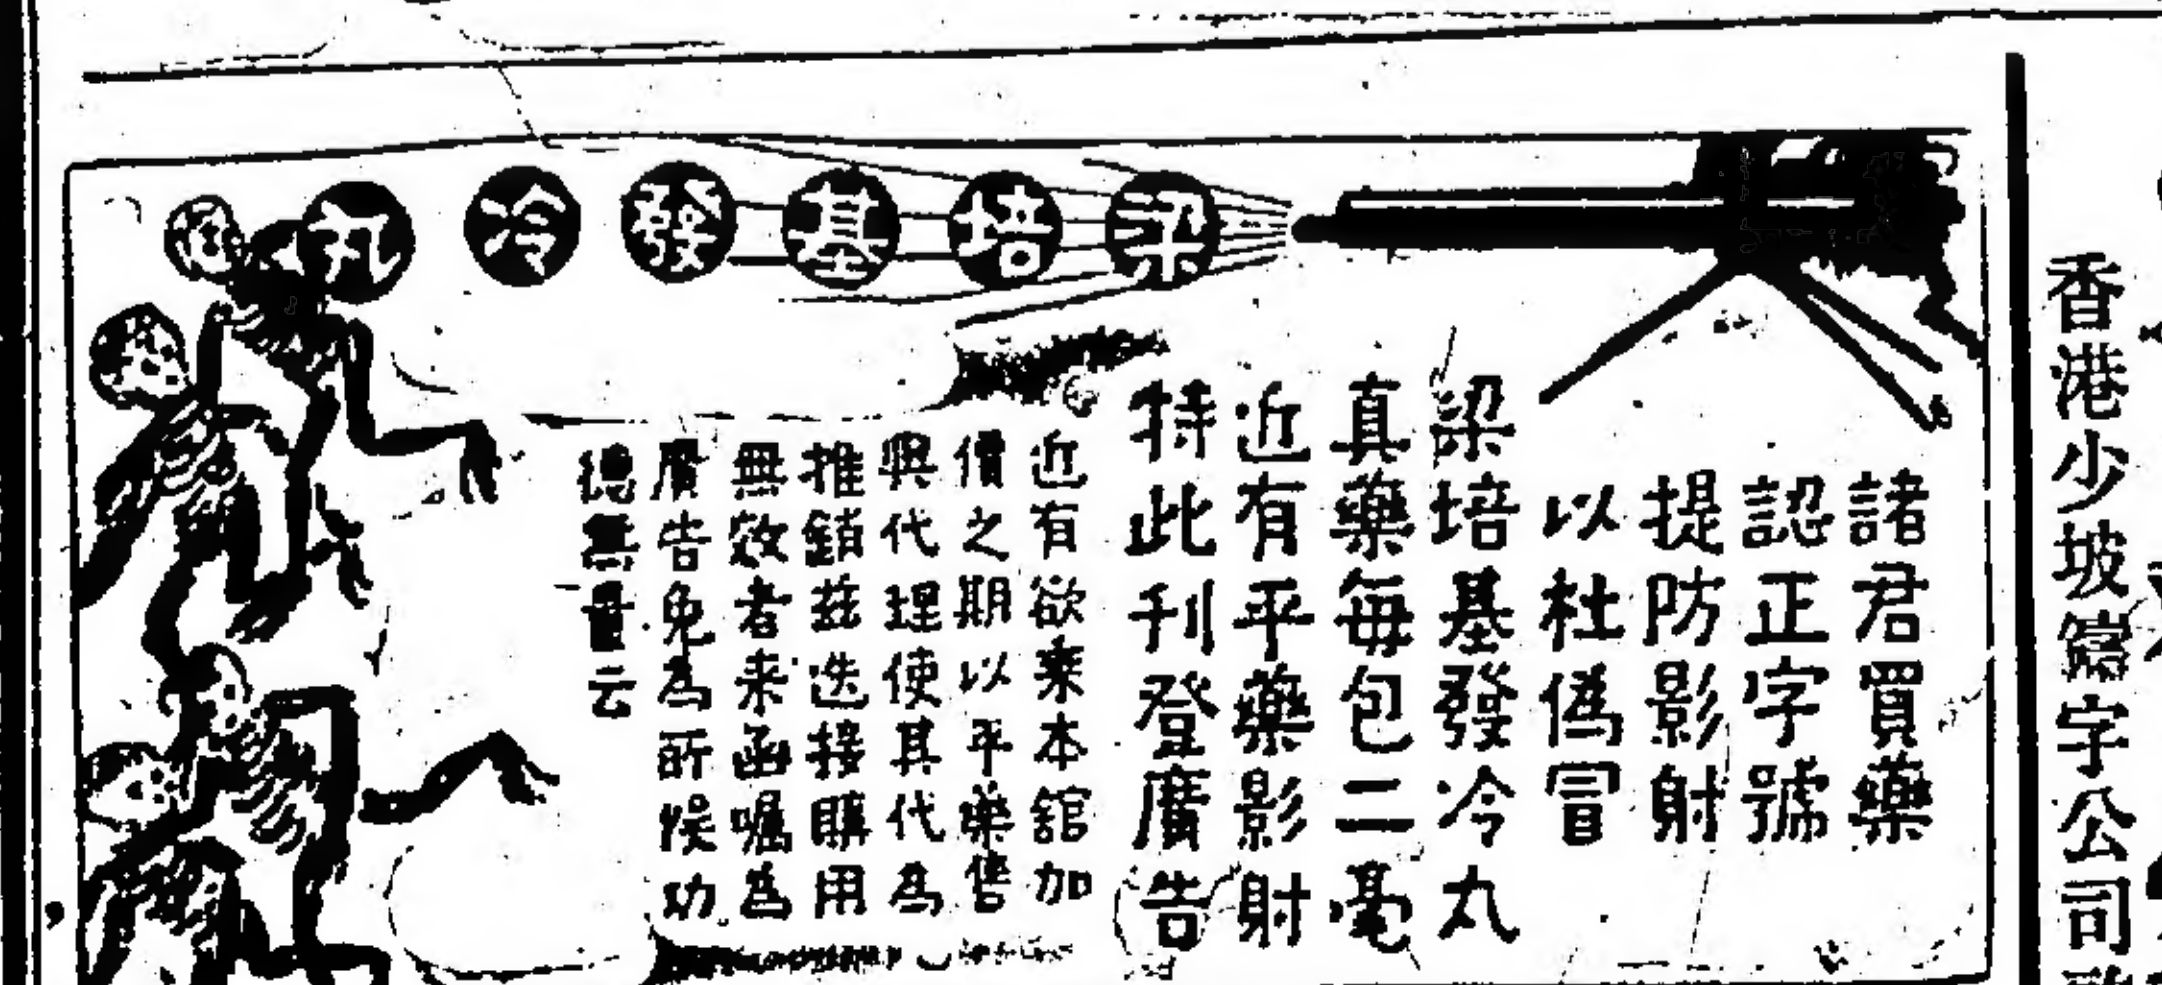 香港少坡寫字公司
梁培基發冷丸
諸君買藥
認正字號
提防影射
以杜偽冒
梁培基發冷丸
真藥每包二毫
近有平藥影射
特此刊登廣告
近有欲乘本館加
價之期以平藥售
與代理使其代為
推銷茲迭接購用
無效者来函囑為
廣告免為所悞功
德無量云